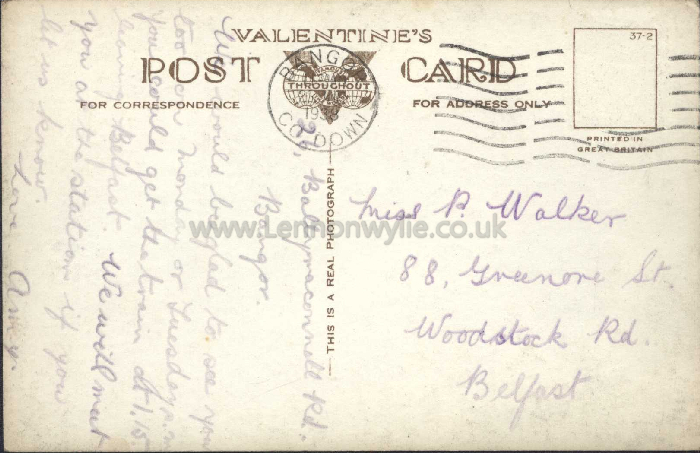 VALENTINE'S
POST CARD
FOR CORRESPONDENCE
FOR ADDRESS ONLY
37-2
PRINTED IN
GREAT BRITAIN
BANGOR
CO. DOWN
THROUGHOUT
THIS IS A REAL PHOTOGRAPH
www.Lennonwylie.co.uk
Miss P. Walker
88, Greenore St.
Woodstock Rd.
Belfast
Ballymaconnell Rd.
Bangor.
We would be glad to see you
too on Monday or Tuesday
you could get the train at 1.15
leaving Belfast. We will meet
you at the station if you
let us know.
Love Amy.